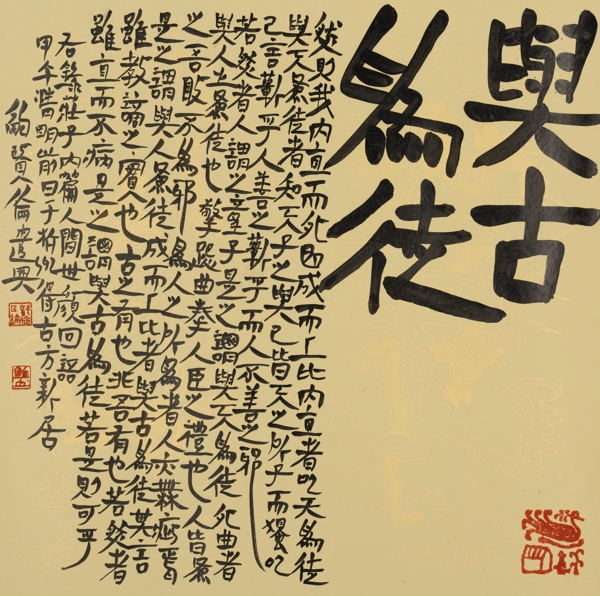 與古
為徒
然則我內直而外曲成而上比內直者以天為徒
與天為徒者知天子之與己皆天之所子而獨以
己言蘄乎人善之蘄乎而人不善之邪
若然者人謂之童子是之謂與天為徒外曲者
與人之為徒也擎跽曲拳人臣之禮也人皆為
之吾敢不為邪為人之所為者人亦無疵焉
是之謂與人為徒成而上比者與古為徒其言
雖教讁之實也古之有也非吾有也若然者
雖直而不病是之謂與古為徒若是則可乎
右錄莊子內篇人間世顏回語
甲午清明前日于杭州得古方新居
鮑賢倫遣興